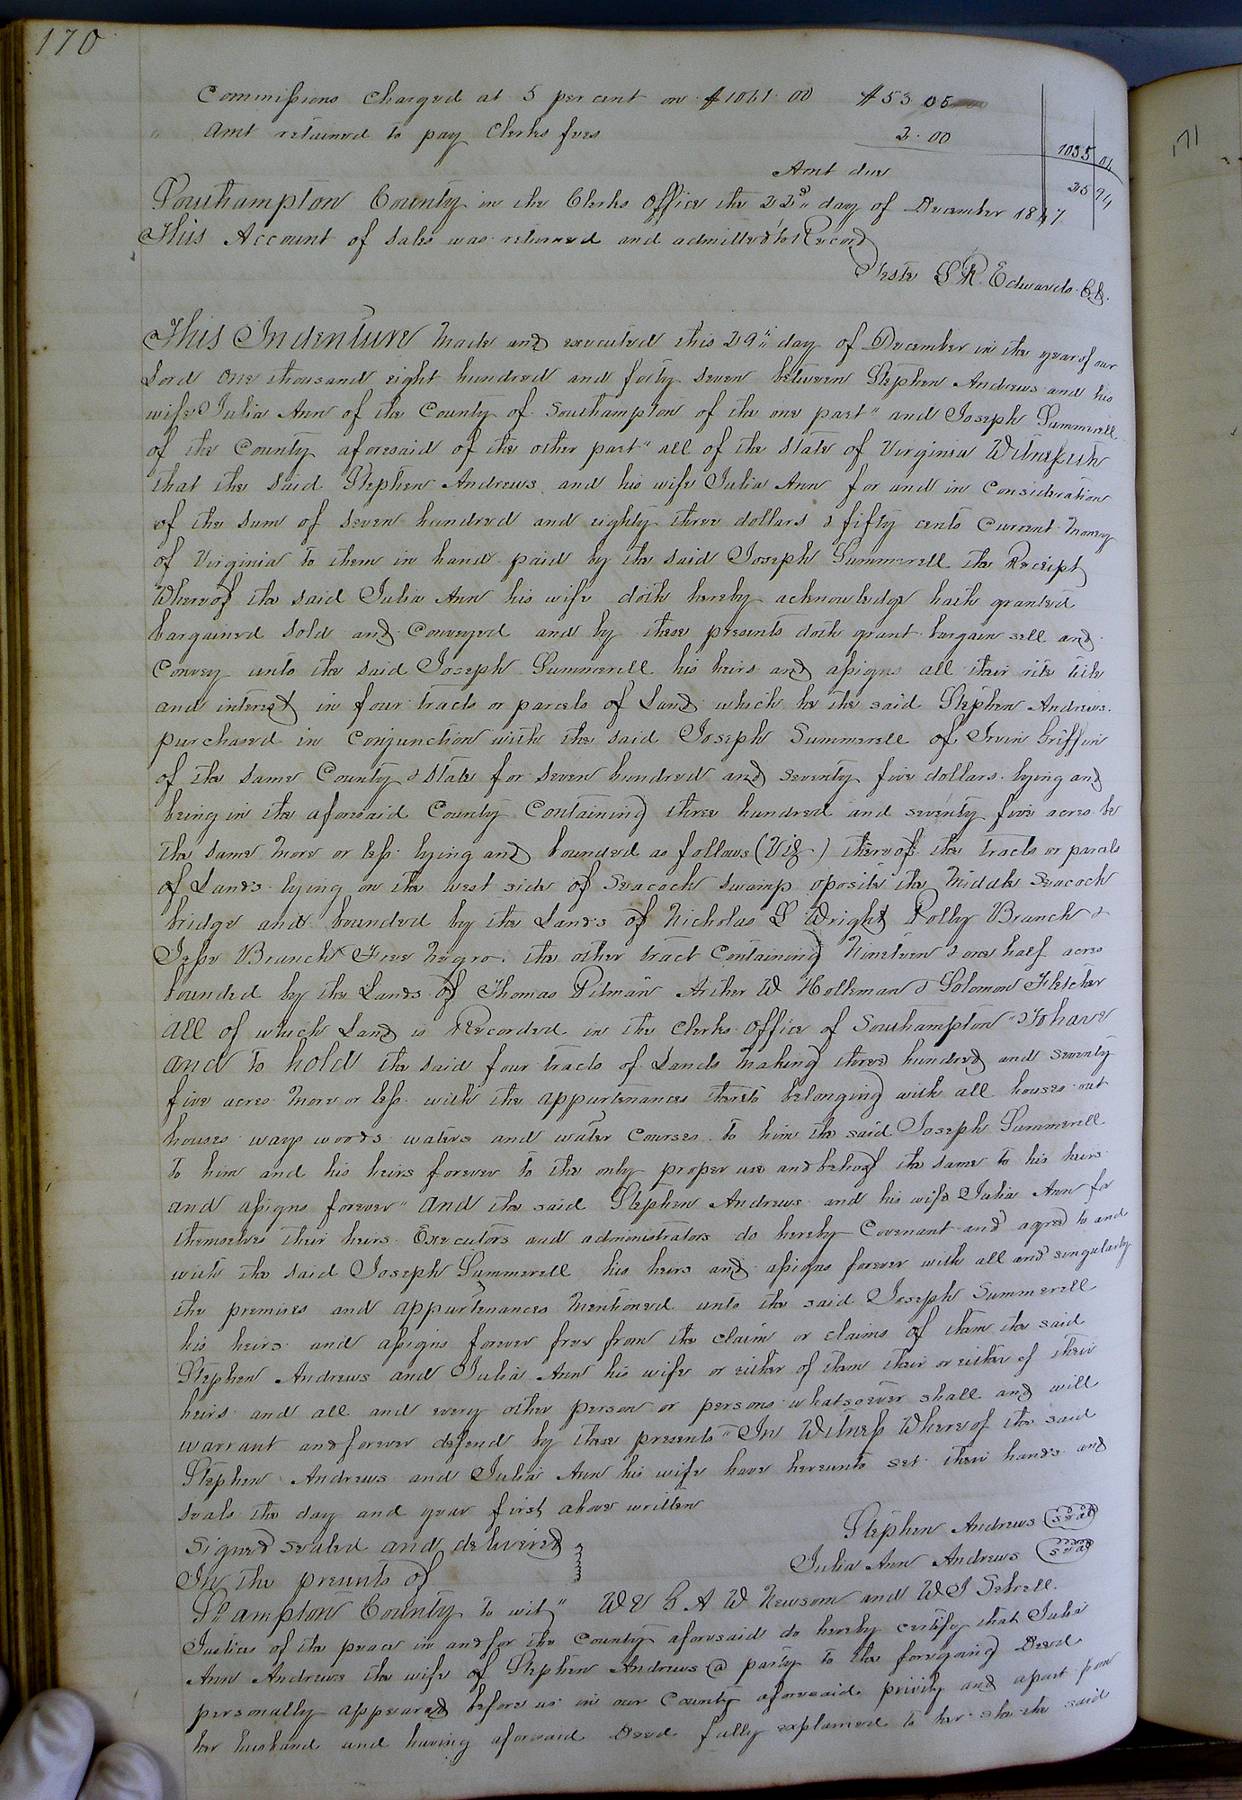 170
Commissions charged at 5 per cent on $1061.00 $53 05
" Amt retained to pay Clerks fees 2.00 1035 06
Amt due 25 94
Southampton County in the Clerks Office the 22d day of December 1847
This Account of Sales was returned and admitted to Record
Teste L R. Edwards C.C.
This Indenture Made and executed this 29th day of December in the year of our
Lord One thousand eight hundred and forty seven between Stephen Andrews and his
wife Julia Ann of the County of Southampton of the one part" and Joseph Summerell
of the County aforesaid of the other part" all of the State of Virginia Witnesseth
that the said Stephen Andrews and his wife Julia Ann for and in Consideration
of the sum of seven hundred and eighty three dollars & fifty cents Current Money
of Virginia to them in hand paid by the said Joseph Summerell the Receipt
Whereof the said Julia Ann his wife doth hereby acknowledge hath granted
bargained Sold and Conveyed and by these presents doth grant bargain sell and
Convey unto the said Joseph Summerell his heirs and assigns all their rite title
and interest in four tracts or parcels of Land which he the said Stephen Andrews.
purchased in Conjunction with the said Joseph Summerell of Irvin Griffin
of the same County & State for seven hundred and seventy five dollars. lying and
being in the aforesaid County Containing three hundred and seventy five acres be
the same More or less lying and bounded as follows (Viz) thereof the tracts or parcels
of Lands lying on the west side of Seacock Swamp oposite the Middle Seacock
bridge and bounded by the Lands of Nicholas L Wright Polly Branch &
Jesse Branch Free Negro. the other tract Containing Nineteen & one half acres
bounded by the Lands of Thomas Pitman Arther W Holleman & Solomon Fletcher
all of which Land is Recorded in the Clerks Office of Southampton" To have
and to hold the said four tracts of Lands Making three hundred and seventy
five acres More or less with the appurtenances thereto belonging with all houses out
houses ways woods waters and water Courses to him the said Joseph Summerell
to him and his heirs forever to the only proper use and behoof the same to his heirs
and assigns forever" and the said Stephen Andrews and his wife Julia Ann for
themselves their heirs Executors and administrators do hereby Covenant and agree to and
with the said Joseph Summerell his heirs and assigns forever with all and singularly
the premises and appurtenances Mentioned unto the said Joseph Summerell
his heirs and assigns forever free from the claim or claims of them the said
Stephen Andrews and Julia Ann his wife or either of them their or either of their
heirs and all and every other person or persons whatsoever shall and will
warrant and forever defend by these presents" In Witness Whereof the said
Stephen Andrews and Julia Ann his wife have hereunto set their hands and
seals the day and year first above written
Stephen Andrews (seal)
Signed sealed and delivered
Julia Ann Andrews (seal)
In the presents of
S°hampton County to wit" We A W Newsom and W J Sebrell.
Justices of the peace in and for the County aforesaid do hereby certify that Julia
Ann Andrews the wife of Stephen Andrews @ party to the foregoing Deed
personally appeared before us in our County aforesaid privily and apart from
her husband and having aforesaid Deed fully explained to her she the said
171